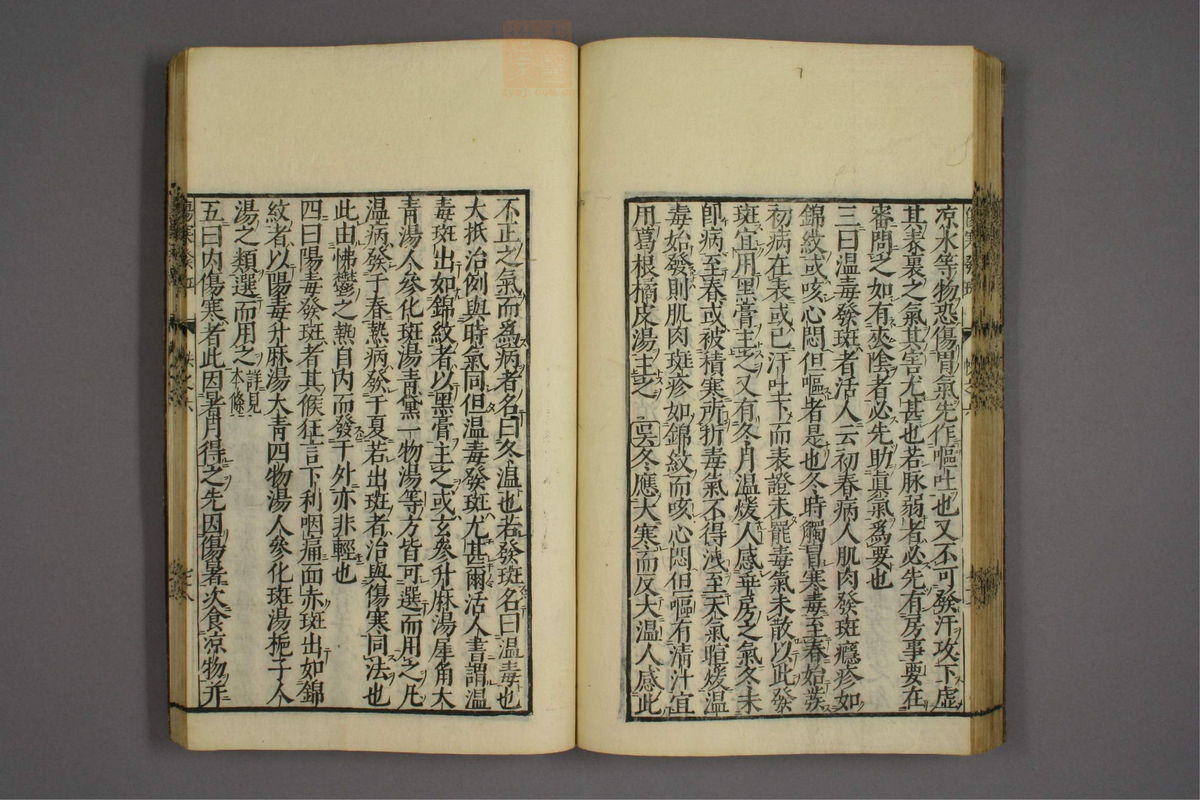 凉水等物恐傷胃氣先作嘔吐也又不可發汗攻下虚
其表裏之氣其害尤甚也若脉弱者必先有房事要在
審問之如有夾陰者必先助眞氣爲要也
三曰温毒發斑者活人云初春病人肌肉發斑癮疹如
錦紋或咳心悶但嘔者是也冬時觸冒寒毒至春始發
初病在表或已汗吐下而表證未罷毒氣未散以此發
斑宜用黒膏主之又有冬月温煖人感乖戾之氣冬未
即病至春或被積寒所折毒氣不得洩至天氣暄煖温
毒始發則肌肉斑疹如錦紋而咳心悶但嘔有清汁宜
用葛根橘皮湯主之 冬應大寒而反大温人感此
不正之氣而爲病者名曰冬温也若發斑名曰温毒也
大抵治例與時氣同但温毒發斑尤甚爾活人書謂温
毒斑出如錦紋者以黒膏主之或玄參升麻湯犀角大
青湯人參化斑湯青黛一物湯等方皆可選而用之凡
温病發于春熱病發于夏若出斑者治與傷寒同法也
此由怫鬱之熱自内而發于外亦非輕也
四曰陽毒發斑者其候狂言下利咽痛面赤斑出如錦
紋者以陽毒升麻湯大青四物湯人參化斑湯梔子人
湯之類選而用之詳見本條
五曰内傷寒者此因暑月得之先因傷暑次食凉物并